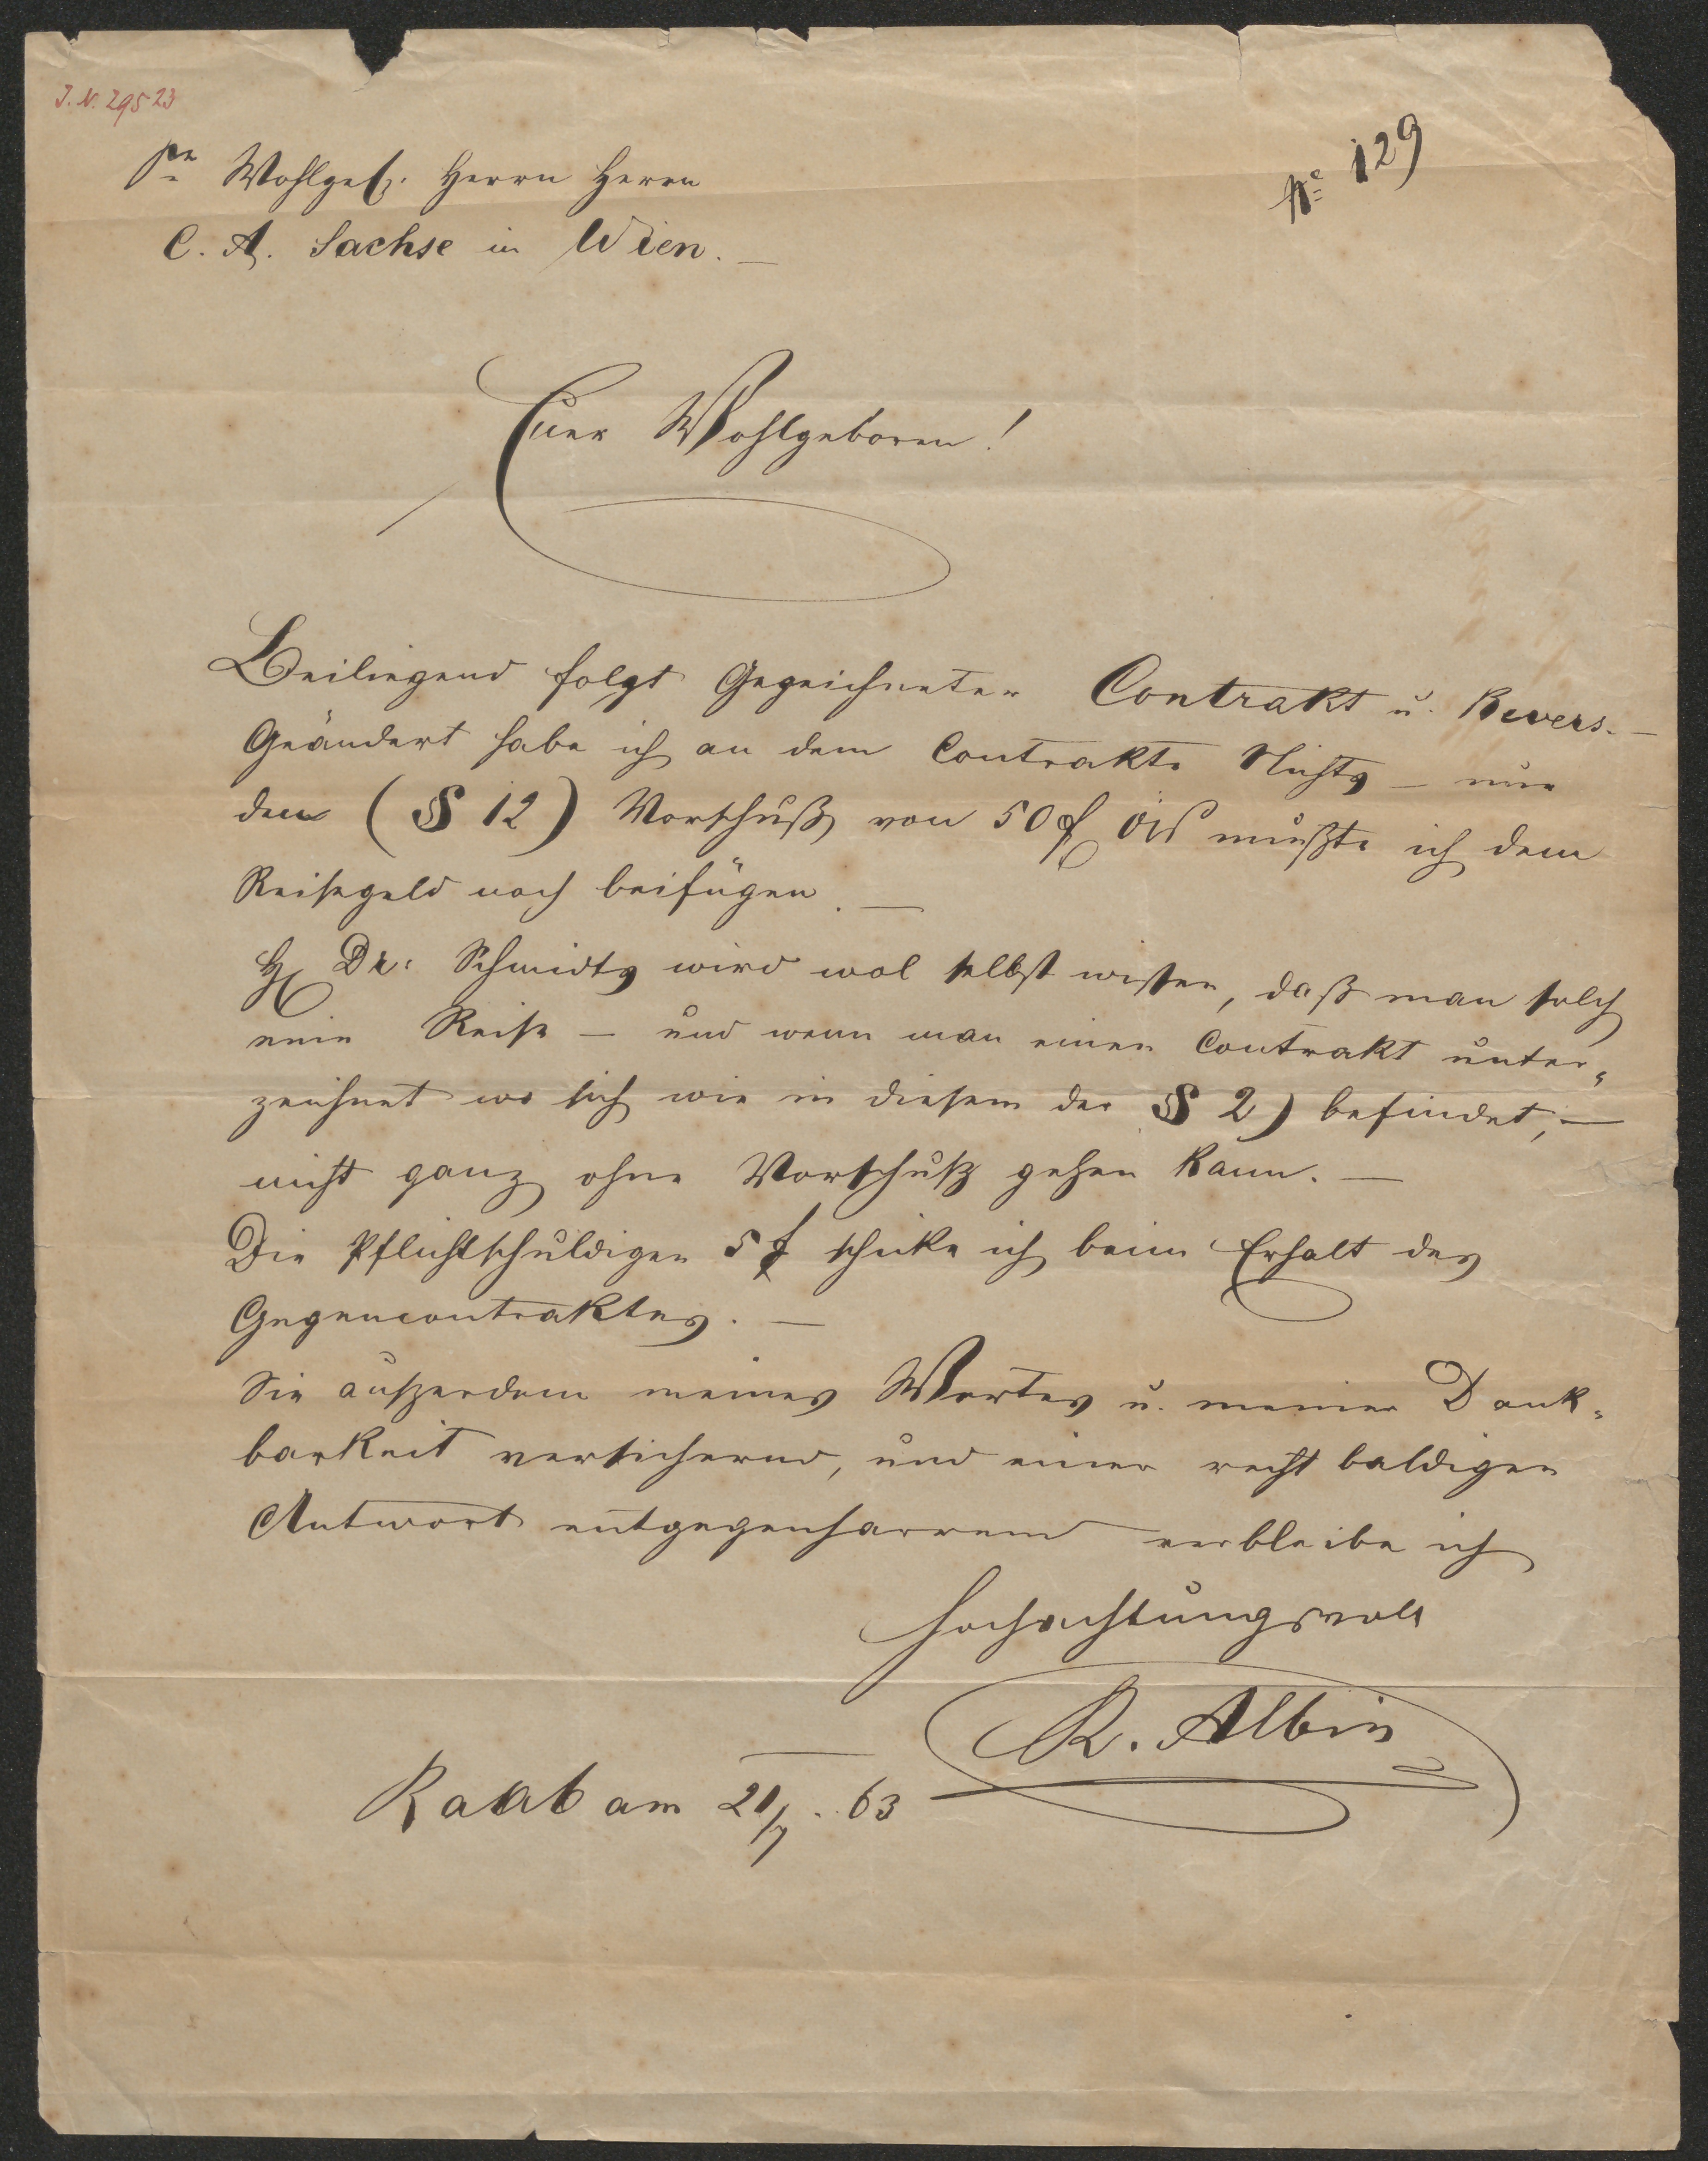 J. N. 29523
No 129
Sr Wohlgeb. Herrn Herrn
C. A. Sachse in Wien. —
Euer Wohlgeboren!
Beiliegend folgt Gezeichneter Contrakt u. Revers. —
Geändert habe ich an dem Contrakte Nichts — nur
den (§ 12) Vorschuß von 50 f ÖW mußte ich dem
Reisegeld noch beifügen. —
H Dr: Schmidts wird wol selbst wissen, daß man solch
eine Reise — und wenn man einen Contrakt unter=
zeichnet wo sich wie in diesem der § 2) befindet, —
nicht ganz ohne Vorschuß gehen kann. —
Die Pflichtschuldigen 5 f schicke ich beim Erhalt des
Gegencontraktes. —
Sie außerdem meines Wortes u. meiner Dank=
barkeit versichernd, und einer recht baldigen
Antwort entgegenharrend verbleibe ich
Hochachtungsvoll
R. Albin
Raab am 21/7. 63